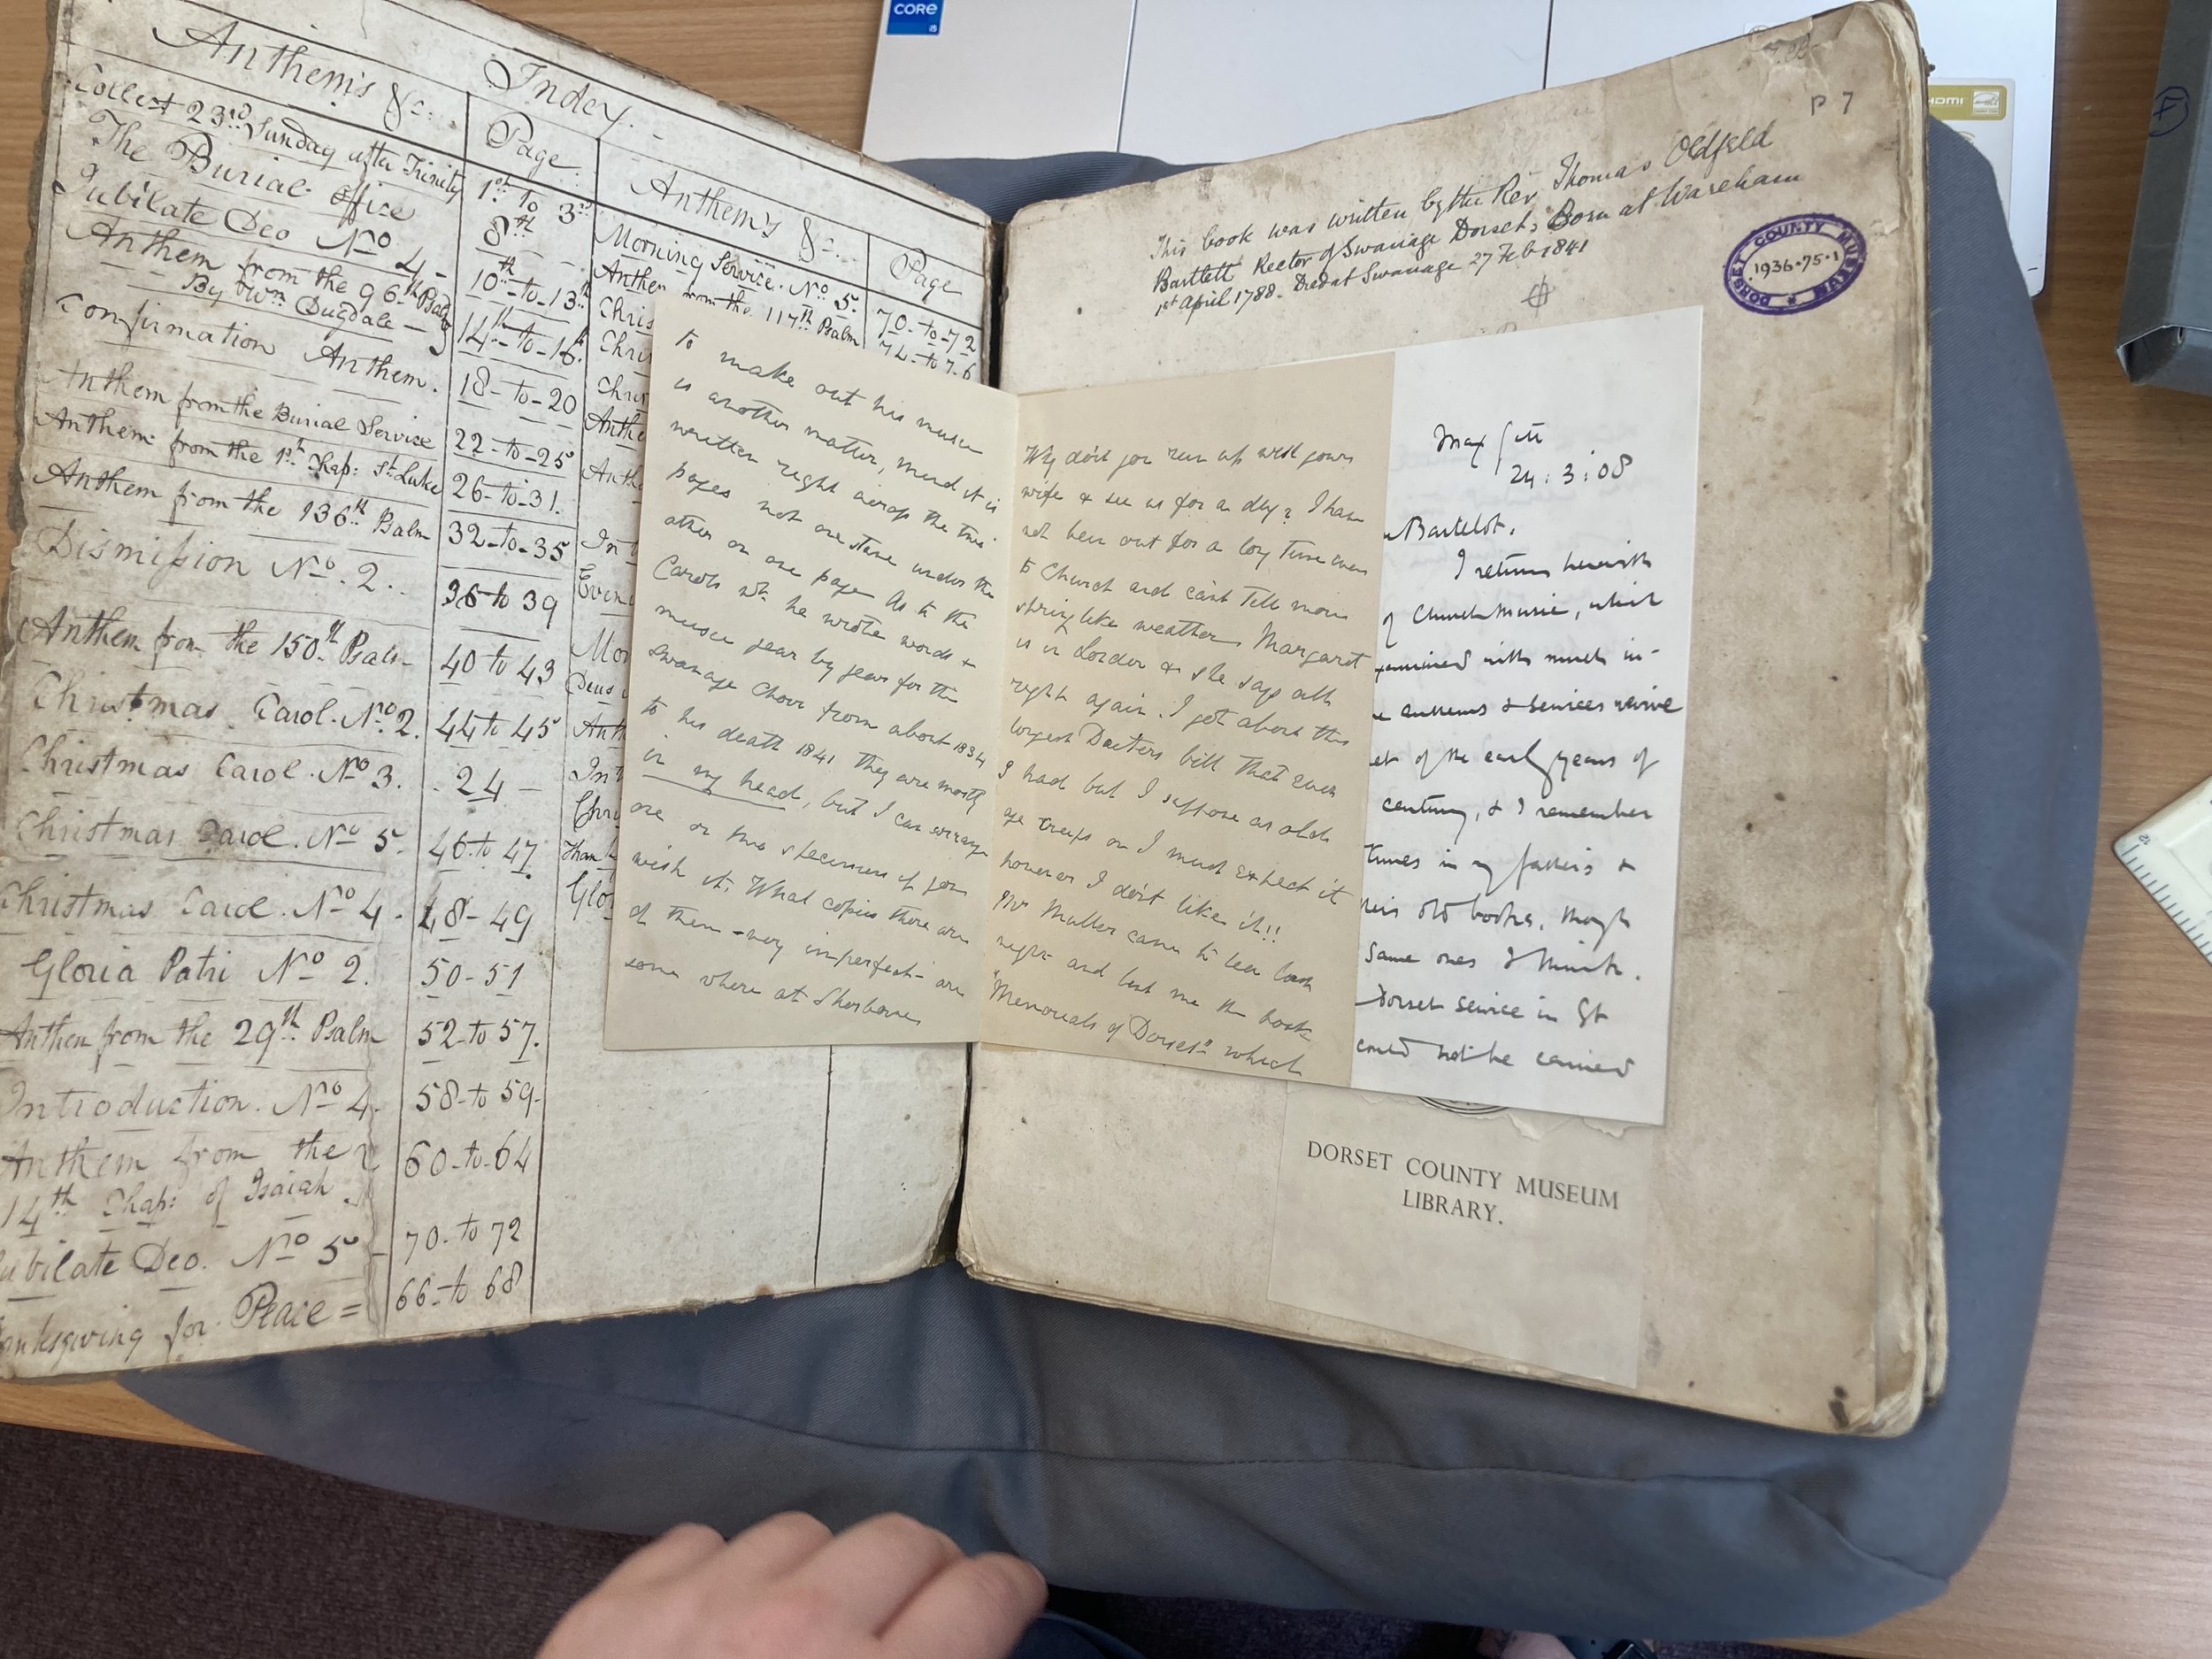 Index
Anthem's &c:
Page
Collect 23rd Sunday after Trinity
1st to 3rd
The Burial Office
8th
Jubilate Deo No 4
10th to 13th
Anthem from the 96th Psalm
By Wm Dugdale
14th to 16
Confirmation Anthem.
18-to-20
Anthem from the Burial Service
22-to-25
Anthem from the 1st Chap: St Luke
26-to-31.
Anthem from the 136th Psalm
32-to-35
Dismission No. 2.
36 to 39
Anthem from the 150th Psalm
40 to 43
Christmas Carol. No 2.
44 to 45
Christmas Carol. No 3.
24
Christmas Carol. No 5.
46 to 47
Christmas Carol. No 4
48-49
Gloria Patri No 2.
50-51
Anthem from the 29th Psalm
52 to 57.
Introduction. No 4.
58-to 59
Anthem from the
14th Chap: of Isaiah
60-to-64
ubilate Deo. No 5
70. to 72
anksgiving for Peace =
66-to 68
Anthem's &c
Page
Morning Service. No 5.
70-to-72
Anthem from the 117th Psalm
74-to 76
Chris
Chri
Chri
Anthe
Anth
In t
Even
Mor
Deus
Anth
In t
Than
Glo
to make out his music
is another matter, mind it is
written right across the two
pages not one stave under the
other on one page As to the
Carols wh. he wrote words &
music year by year for the
Swanage Choir from about 1834
to his death 1841 they are mostly
in my head, but I can arrange
one or two specimens if you
wish it. What copies there are
of them - very imperfect - are
some where at Sherborne
Why don't you run up with your
wife & see us for a day? I have
not been out for a long time even
to Church and can't till more
spring like weather. Margaret
is in London & she says all
right again. I got about the
largest Doctors bill that ever
I had but I suppose as old
age creeps on I must expect it
however I don't like it!!
came to tea last
night and lent me the book
"Memorials of Dorset" which
Max Gate
24:3:08
Bartelot.
I return herewith
of Church Music, which
examined with much in-
anthems & services revive
of the early years of
century, & I remember
tunes in my father's &
old books, though
same ones I think.
Dorset service in Gt
could not be carried
P 7
This book was written by the Rev Thomas Oldfeld
Bartlett Rector of Swanage Dorset, Born at Wareham
1st April 1788. Died at Swanage 27 Feb 1841
DORSET COUNTY MUSEUM
1936.75.1
DORSET COUNTY MUSEUM
LIBRARY.
CORE
i5
HDMI
F